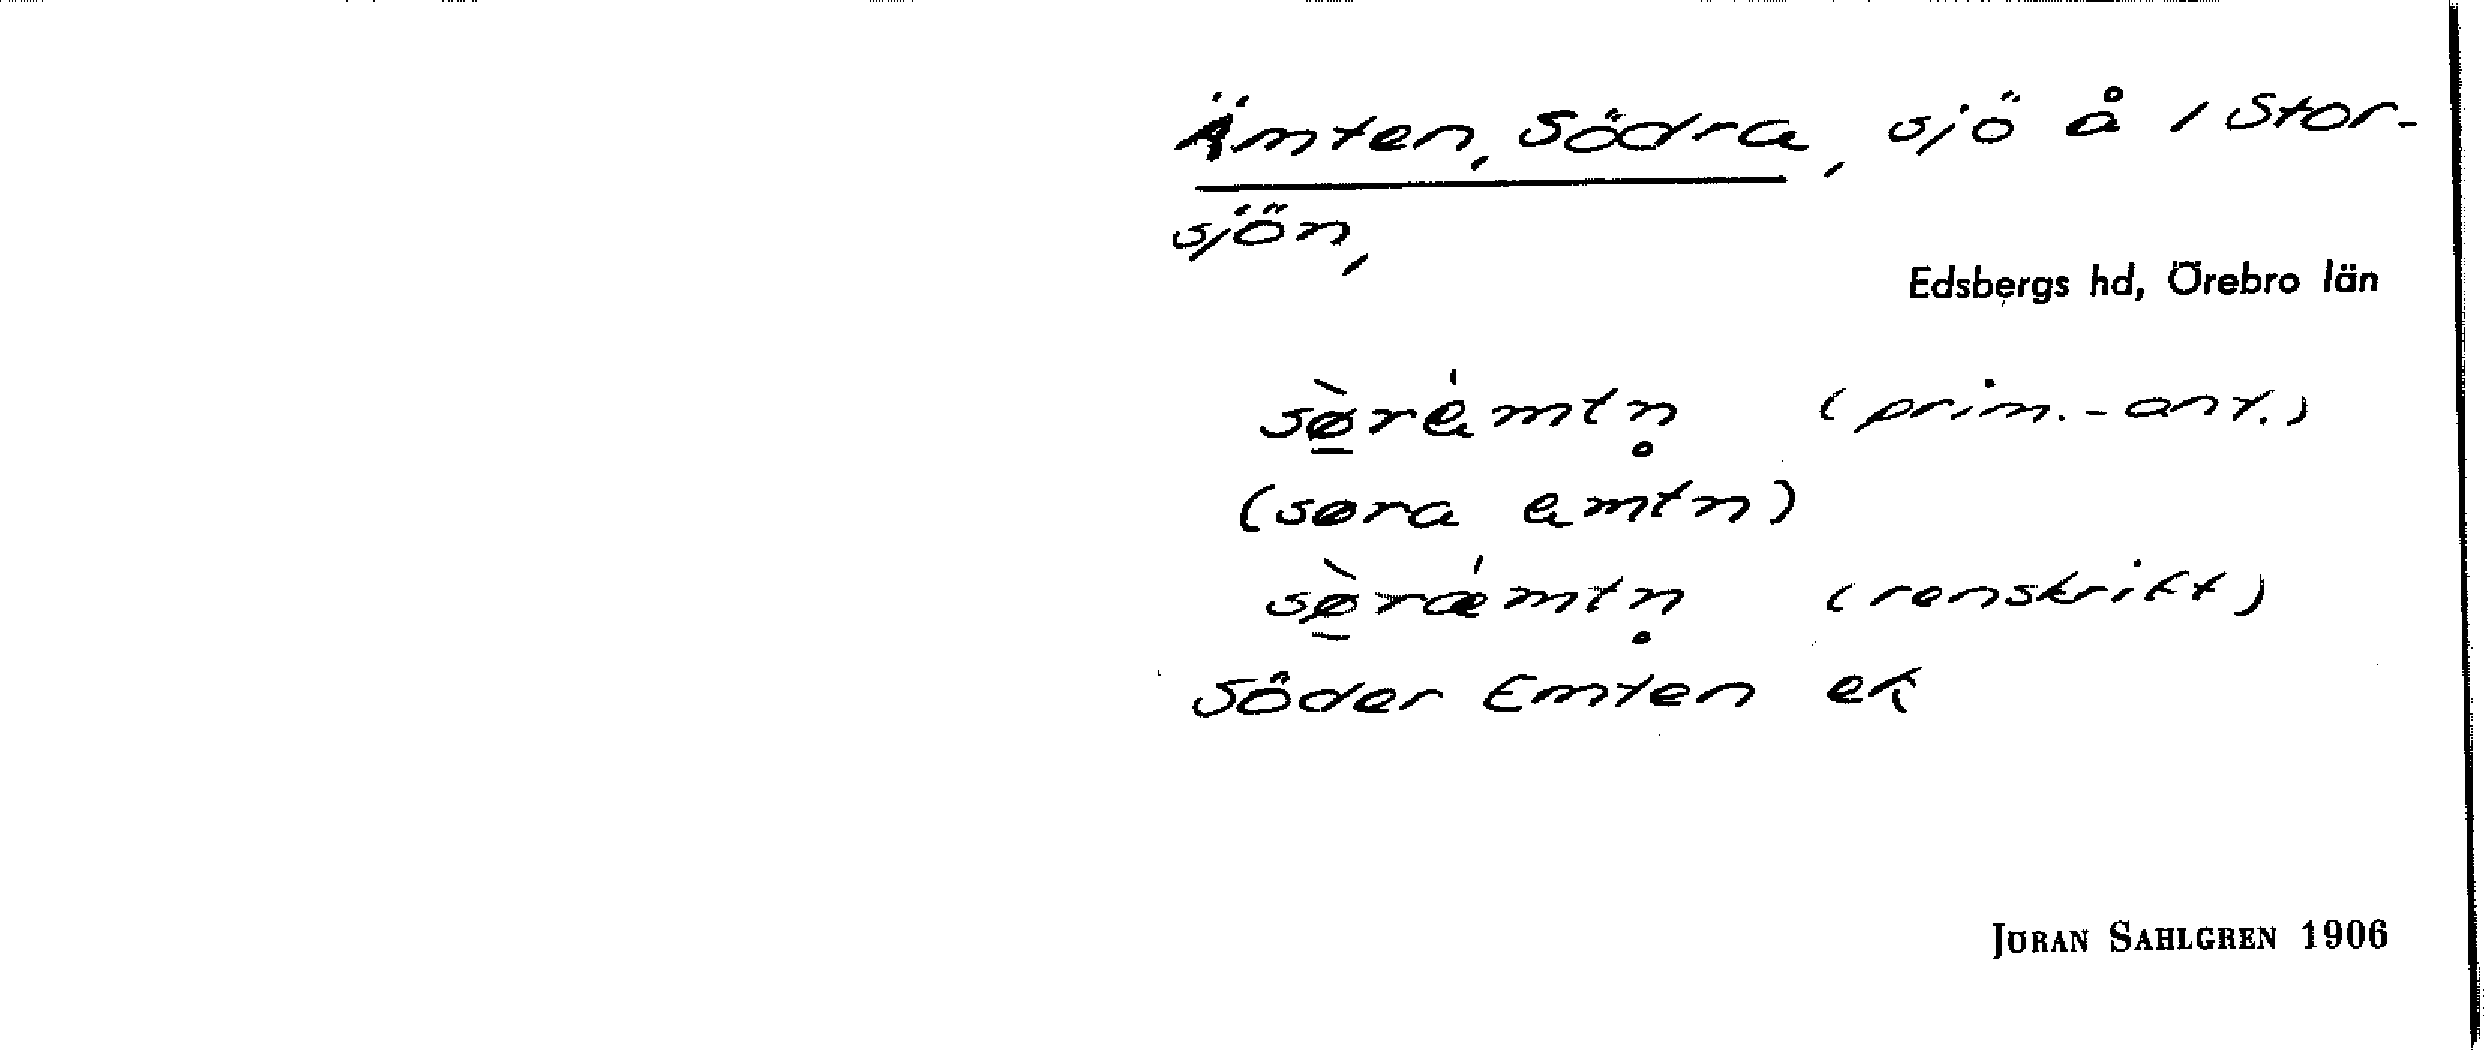 Ämten, Södra, sjö å / Stor-
sjön,
Edsbergs hd, Örebro län
sø̲̀rämtn̥ (prim.-ant.)
(søra ämtn)
sø̲̀ræ̍mtn̥ (renskrift)
Söder Emten ek
JÖRAN SAHLGREN 1906